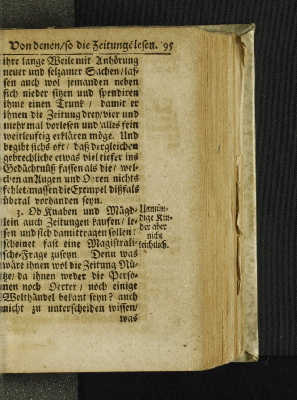 Von denen/so die Zeitung lesen. 95
ihre lange Weile mit Anhörung
neuer und selzamer Sachen/las-
sen auch wol jemanden neben
sich nieder sitzen und spendiren
ihme einen Trunk / damit er
ihnen die Zeitung drey/vier und
mehrmal vorlesen und alles fein
weitleuftig erklären möge. Und
begibt sichs oft/ daß dergleichen
gebrechliche etwas viel tiefer ins
Gedächtnüß fassen als die/ wel-
chen an Augen und Oren nichts
fehlet/massen die Exempel dißfals
überal vorhanden seyn.
3. Ob Knaben und Mägd-
lein auch Zeitungen kaufen/ le-
sen und sich damit tragen sollen?
scheinet fast eine Magistrali-
sche-Frage zu seyn. Denn was
wäre ihnen wol die Zeitung Nü-
tze/ da ihnen weder die Perso-
nen noch Oerter / noch einige
Welthändel bekant seyn? auch
nicht zu unterscheiden wissen/
was
Unmün-
dige Kin-
der aber
nicht
leichtlich.